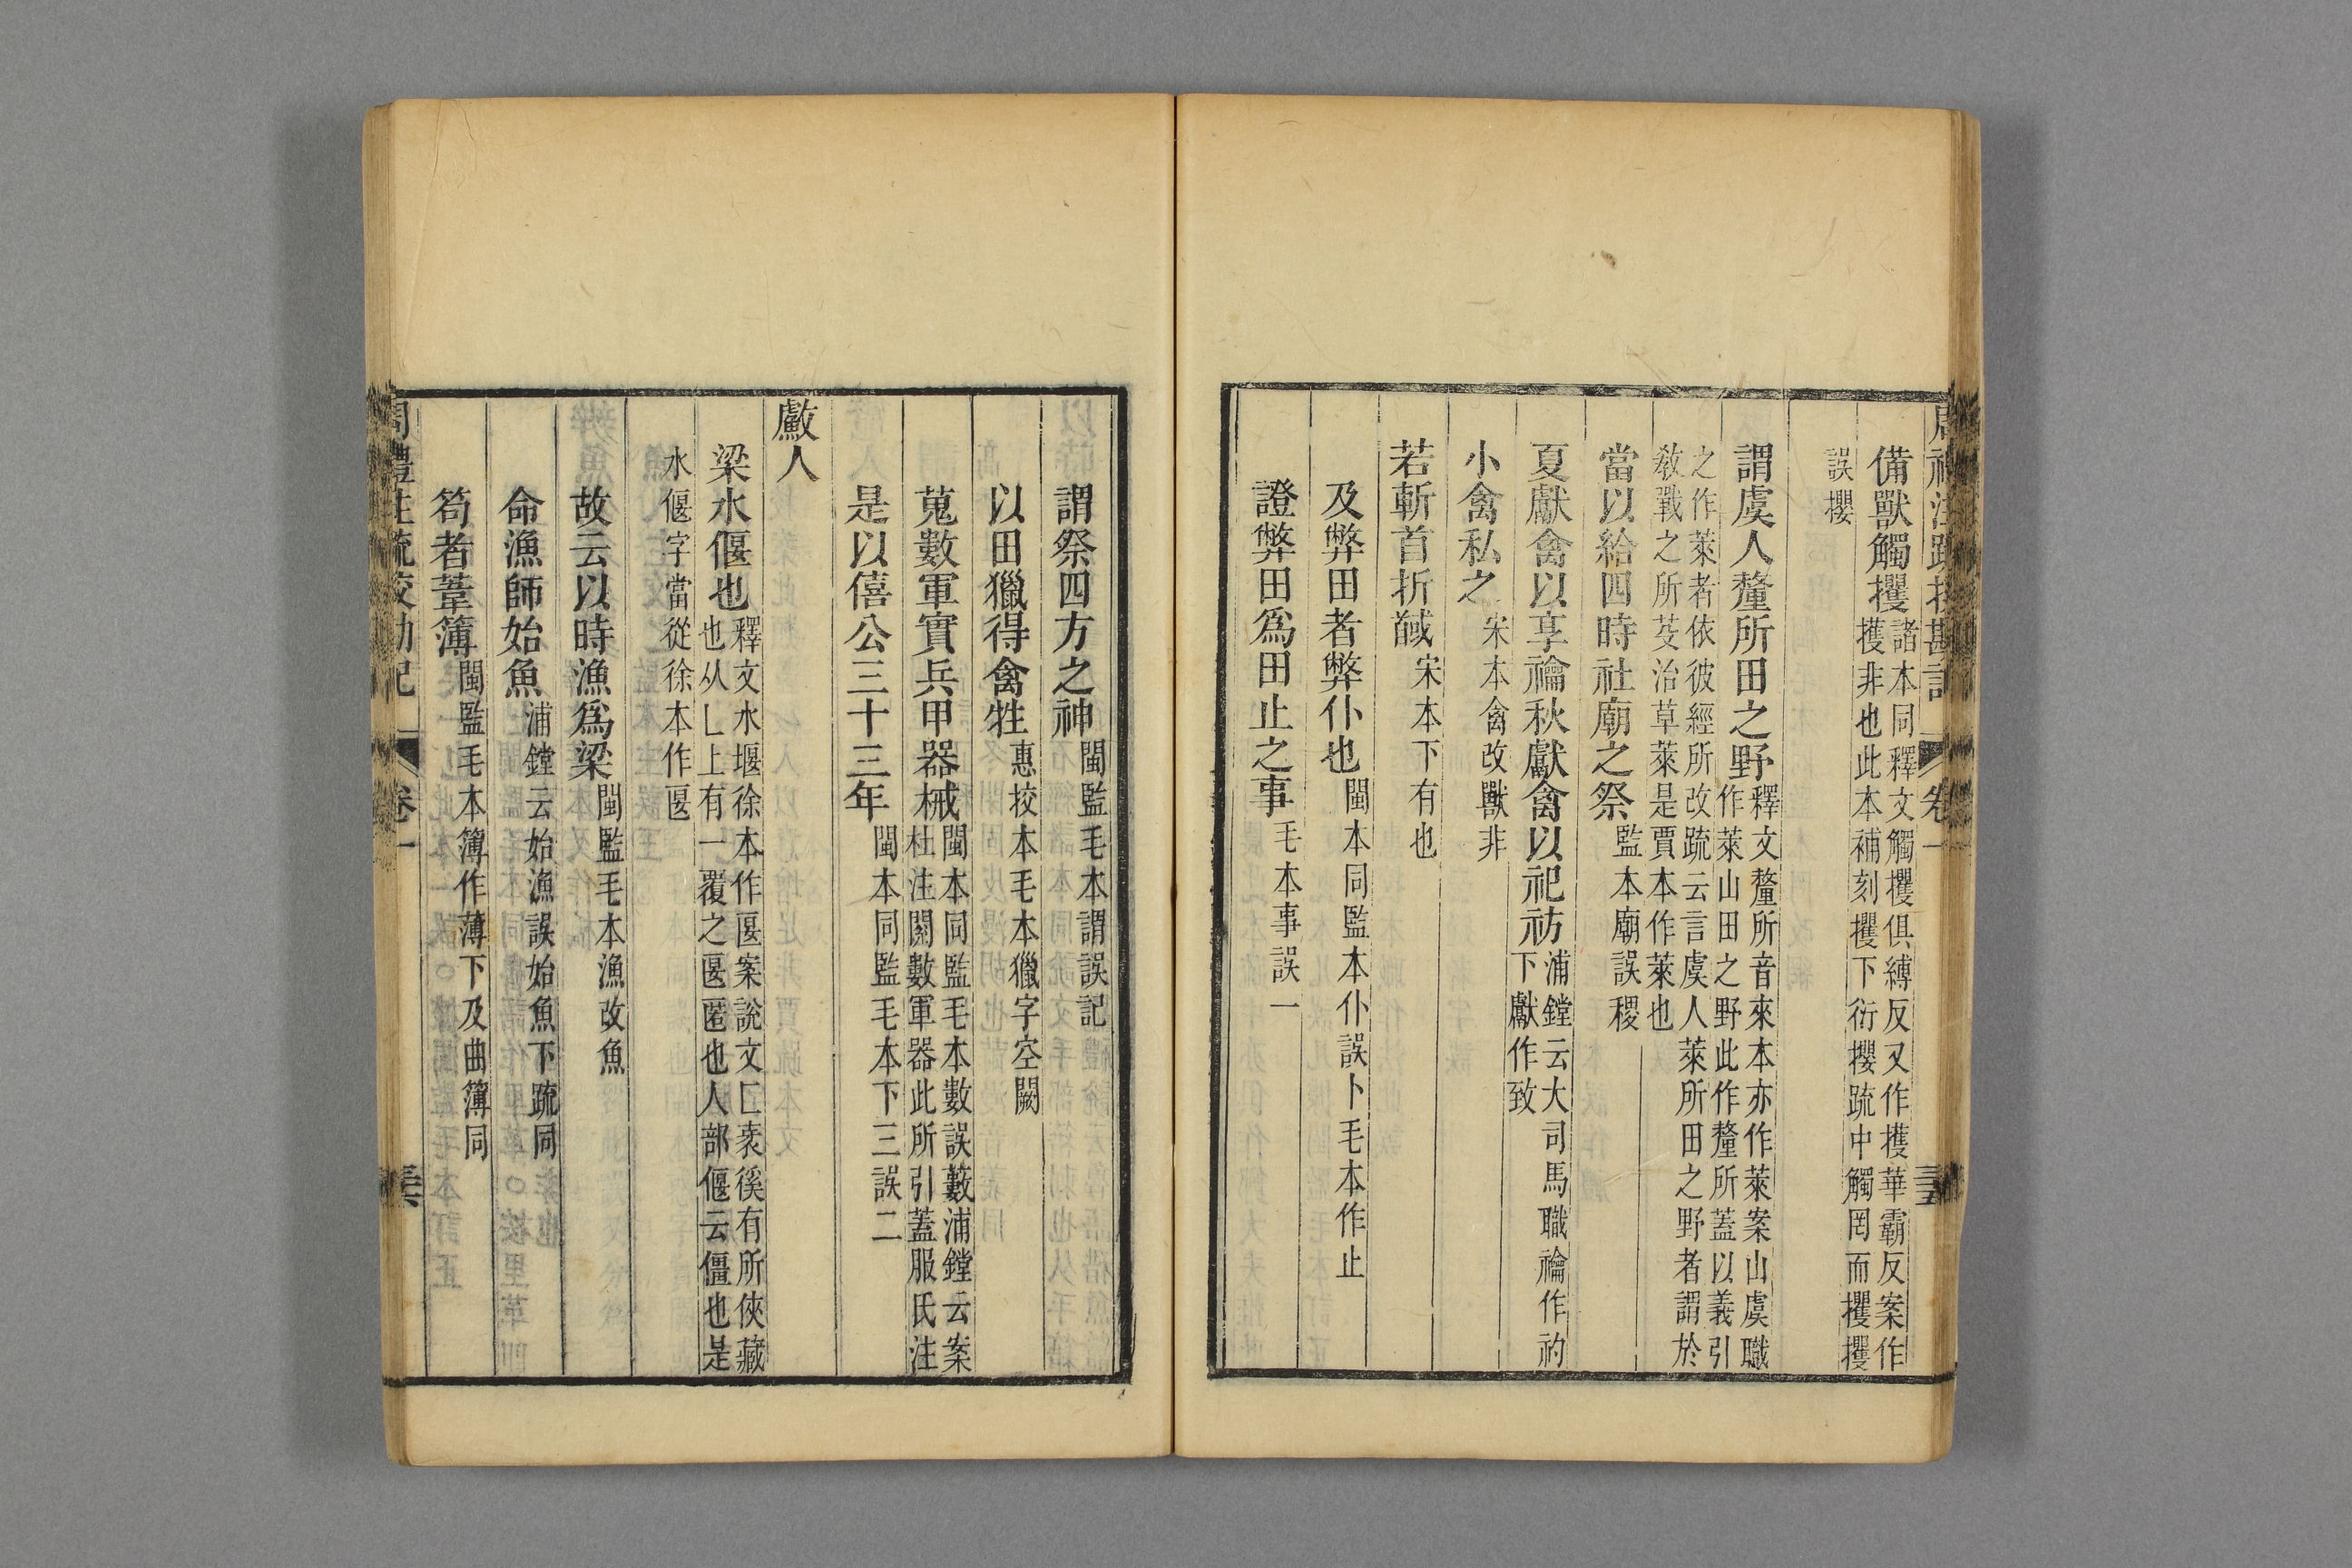 周禮注疏挍勘記 卷一 三五
備獸觸攫諸本同釋文觸攫俱縛反又作擭華霸反案作擭非也此本補刻攫下衍攖疏中觸罔而攫攫
誤攖
謂虞人釐所田之野釋文釐所音來本亦作萊案山虞職作萊山田之野此作釐所蓋以義引
之作萊者依彼經所改疏云言虞人萊所田之野者謂於敎戰之所芟治草萊是賈本作萊也
當以給四時社廟之祭監本廟誤稷
夏獻禽以享禴秋獻禽以祀祊浦鏜云大司馬職禴作礿下獻作致
小禽私之宋本禽改獸非
若斬首折馘宋本下有也
及弊田者弊仆也閩本同監本仆誤卜毛本作止
證弊田爲田止之事毛本事誤一
謂祭四方之神閩監毛本謂誤記
以田獵得禽牲惠挍本毛本獵字空闕
蒐數軍實兵甲器械閩本同監毛本數誤藪浦鏜云案杜注閱數軍器此所引蓋服氏注
是以僖公三十三年閩本同監毛本下三誤二
𢿙人
梁水偃也釋文水堰徐本作匽案說文匸衺徯有所俠藏也从乚上有一覆之匽匿也人部偃云僵也是
水偃字當從徐本作匽
故云以時漁爲梁閩監毛本漁改魚
命漁師始魚浦鏜云始漁誤始魚下疏同
笱者葦簿閩監毛本簿作薄下及曲簿同
周禮注疏挍勘記 卷一 三六